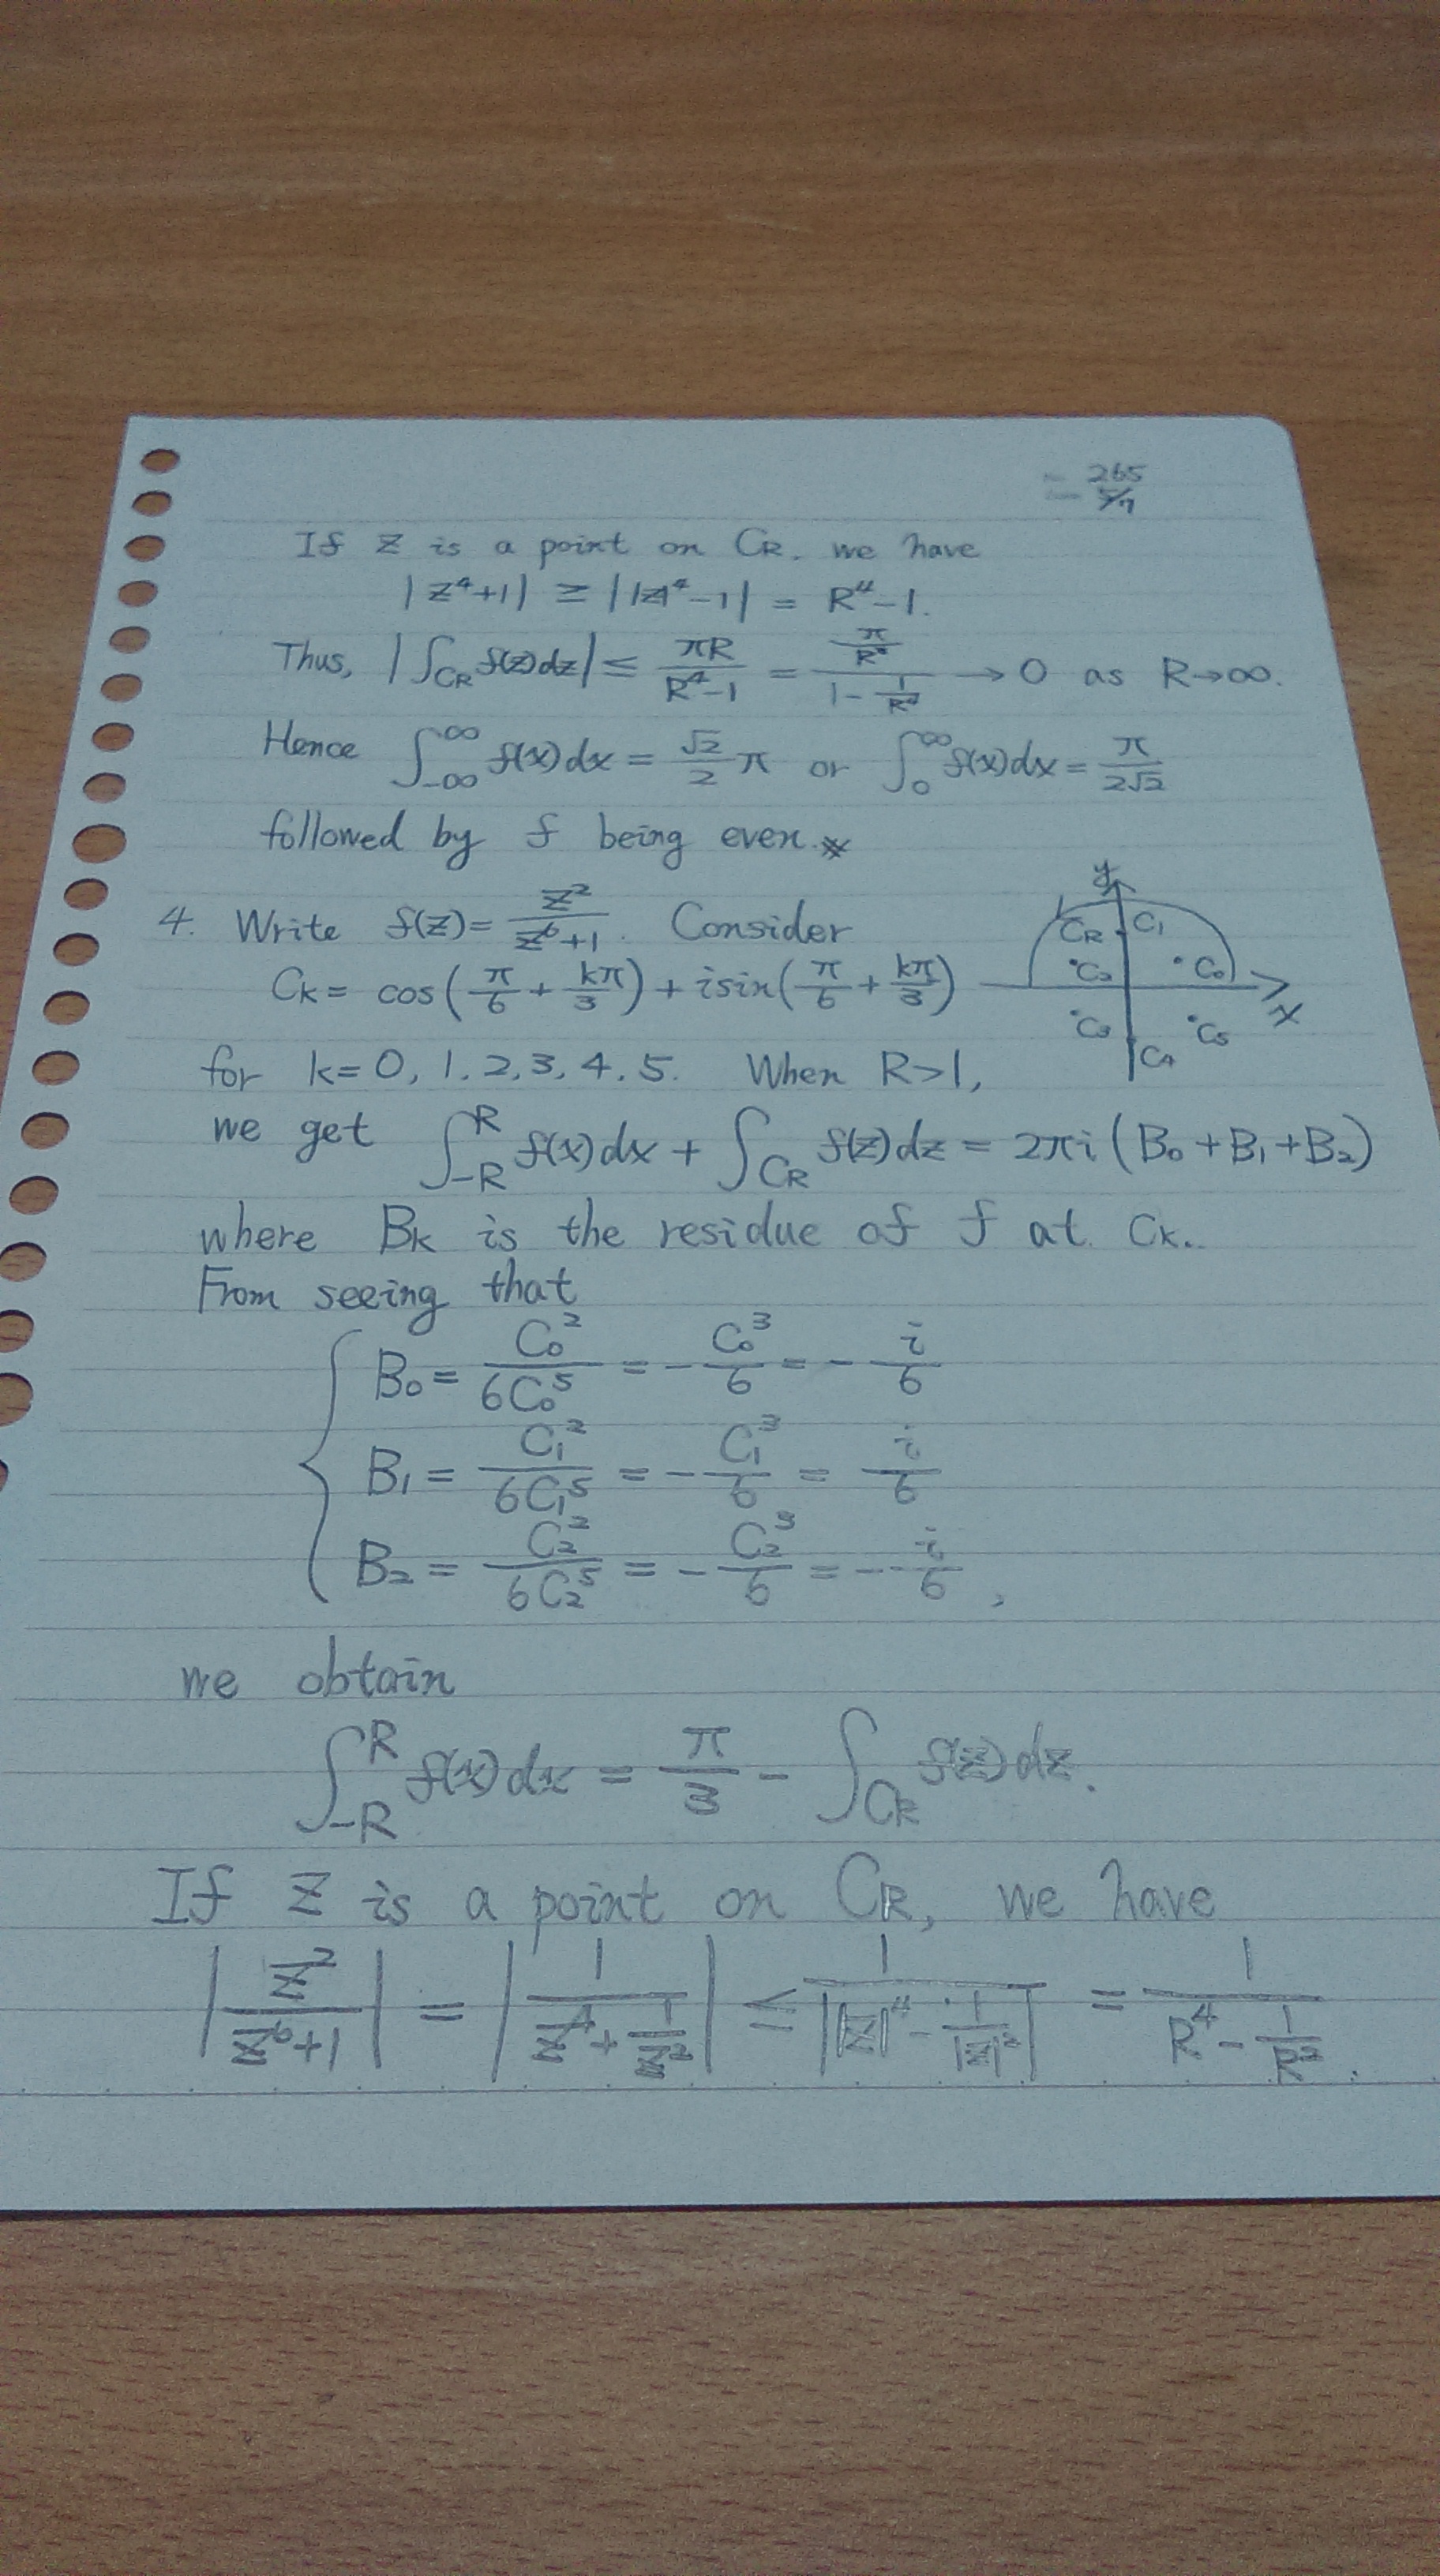 = 265
5/7
If z is a point on C_R, we have
|z⁴+1| ≥ ||z|⁴-1| = R⁴-1.
Thus, |∫_{C_R} f(z)dz| ≤ πR/(R⁴-1) = (π/R³)/(1-1/R⁴) → 0 as R→∞.
Hence ∫_{-∞}^{∞} f(x)dx = (√2/2)π or ∫_0^∞ f(x)dx = π/(2√2)
followed by f being even. ※
4. Write f(z) = z²/(z⁶+1). Consider
C_k = cos(π/6 + kπ/3) + i sin(π/6 + kπ/3)
y
C_R C_1
C_2 C_0
x
C_3 C_5
C_4
for k=0, 1, 2, 3, 4, 5. When R>1,
we get ∫_{-R}^{R} f(x)dx + ∫_{C_R} f(z)dz = 2πi (B_0 + B_1 + B_2)
where B_k is the residue of f at C_k.
From seeing that
B_0 = C_0²/(6C_0⁵) = -C_0³/6 = -i/6
B_1 = C_1²/(6C_1⁵) = -C_1³/6 = i/6
B_2 = C_2²/(6C_2⁵) = -C_2³/6 = -i/6 ,
we obtain
∫_{-R}^{R} f(x)dx = π/3 - ∫_{C_R} f(z)dz.
If z is a point on C_R, we have
|z²/(z⁶+1)| = |1/(z⁴+1/z²)| ≤ 1/||z|⁴-1/|z|²| = 1/(R⁴-1/R²).